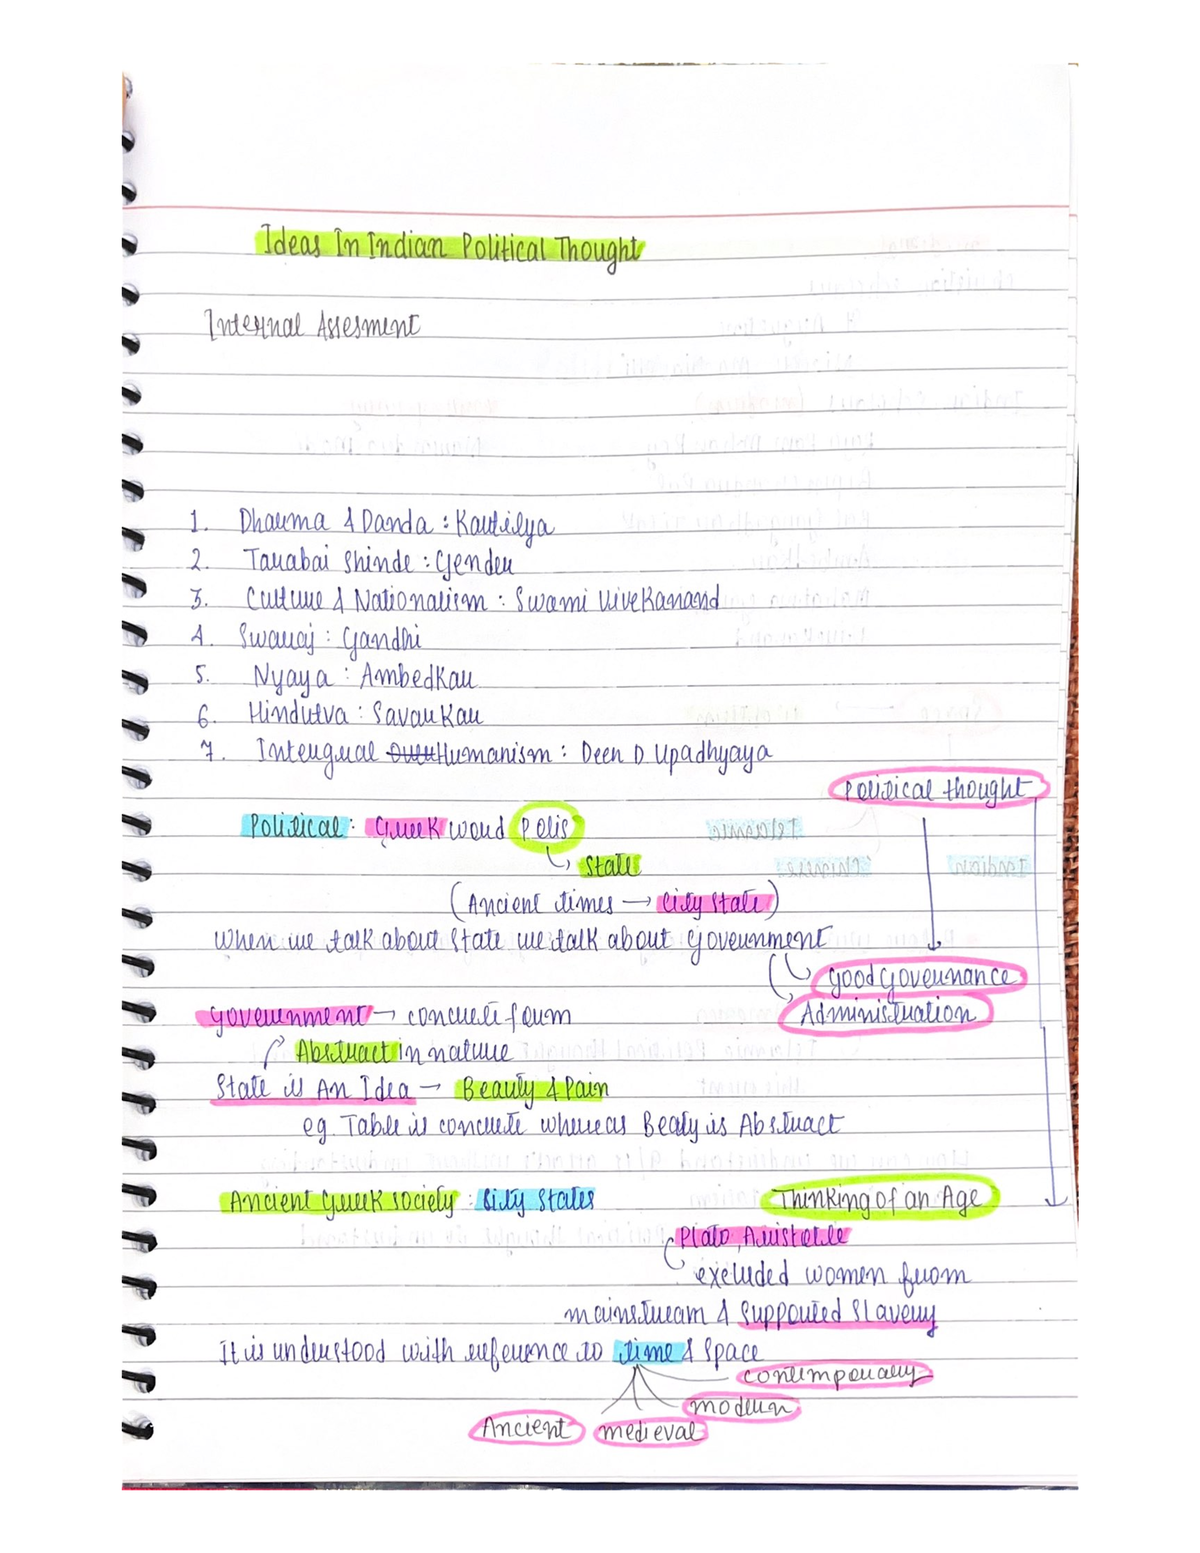 Ideas In Indian Political Thought
Internal Assesment
1. Dharma & Danda : Kautilya
2. Tarabai Shinde : Gender
3. Culture & Nationalism : Swami Vivekanand
4. Swaraj : Gandhi
5. Nyaya : Ambedkar
6. Hindutva : Savarkar
7. Intergral Humanism : Deen D Upadhyaya
Political thought
Political : Greek word Polis
↳ State
(Ancient times → City State)
When we talk about State we talk about Government
Good Governance
Government → concrete form
Administration
Abstract in nature
State is An Idea → Beauty & Pain
eg. Table is concrete whereas Beaty is Abstract
Ancient Greek society : City States
Thinking of an Age
Plato, Aristotle
excluded women from
mainstream & supported Slavery
It is understood with reference to time & space
contemporary
modern
Ancient medieval